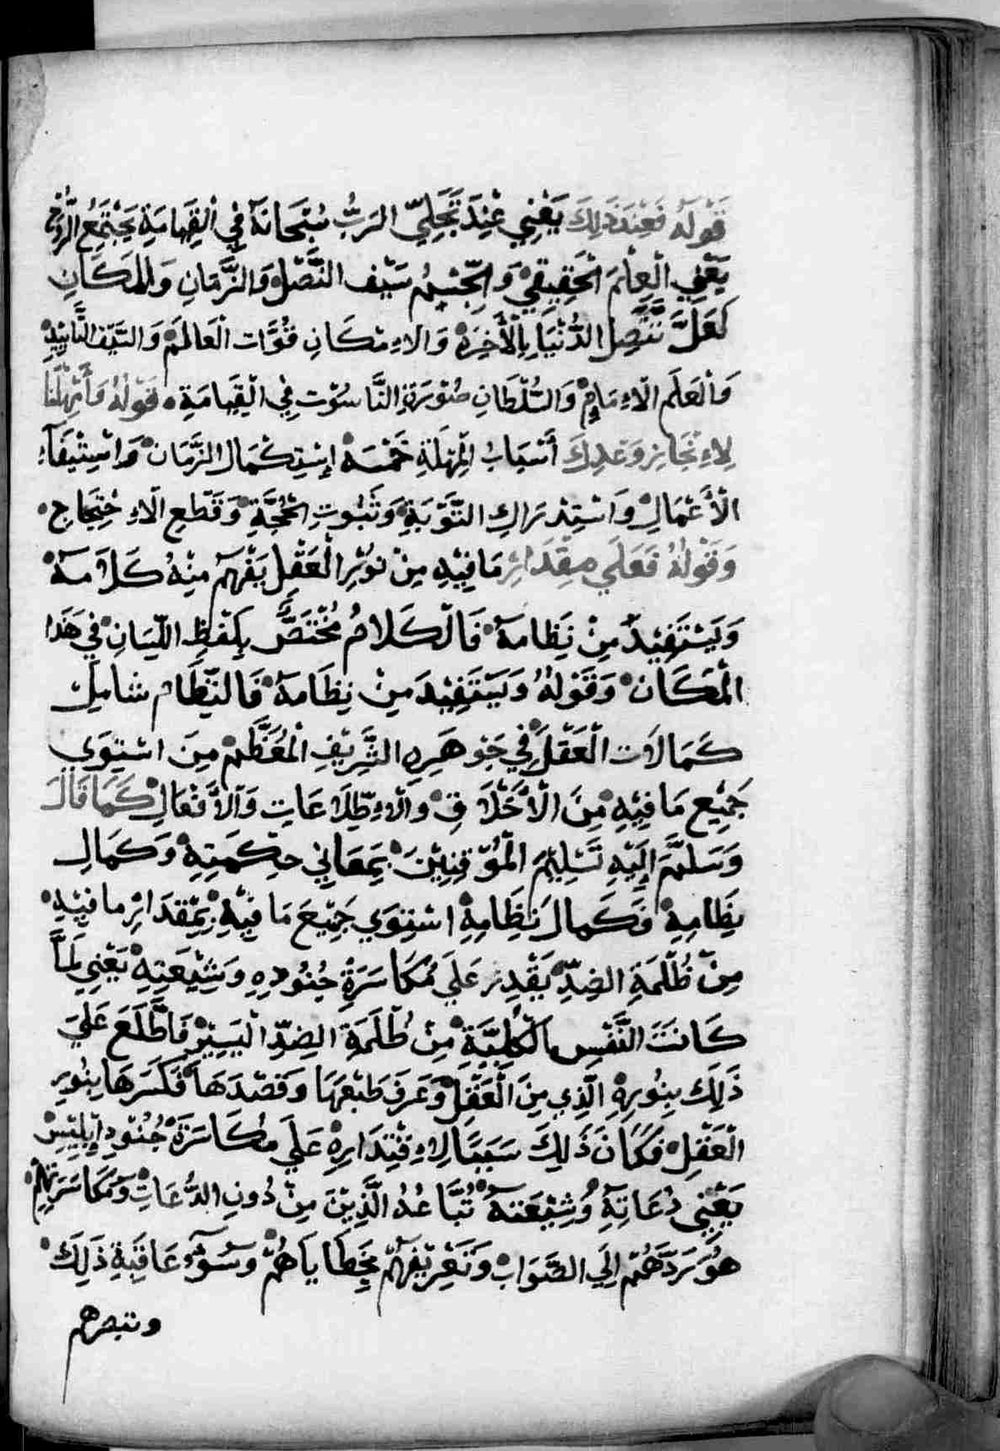 قَوْلُهُ فَعِنْدَ ذَلِكَ يَعْنِي عِنْدَ تَجَلِّيّ الرَبُّ سُبْحَانَهُ فِي الْقِيَامَةِ يَجْتَمِعُ الرُّوحُ
يَعْنِي الْعِلْمَ الْحَقِيقِيْ وَالْجِسْمُ سَيْف النَّصْلْ وَالزَّمَانِ وَالْمَكَانِ
تَتَّصِل الدُّنْيَا بِالْأَخِرَةْ وَالاِمْكَانِ قُوَّات الْعَالَمْ وَالسَّيْف التَّأْيِيْدِ
وَالْعَلَم الْاِمَامِ وَالسُّلْطَانِ صُوْرَةِ النَّاسُوْت فِي الْقِيَامَةِ قَوْلُهُ وَأَمْهَلَنَا
لِاِنْجَازِ وَعْدِكَ أَسْبَابُ الْمِهْلَةِ خَمْسَهْ اِسْتِكْمَال الزَّمَانْ وَاسْتِيْفَآءِ
الْأَعْمَالْ وَاسْتِدْرَاكِ التَّوْبَةِ وَثَبُوتِ الْحُجَّةِ وَقَطْعِ الْاِحْتِجَاجِ
وَقَوْلُهُ فَعَلَي مِقْدَارِ مَا فِيْهِ مِنْ نُوْرِ الْعَقْلِ يَفْهَمُ مِنْهُ كَلَامَهُ
وَيَسْتَفِيْدُ مِنْ نِظَامَهُ فَالْكَلَامُ مُخْتَصٌّ بِلَفْظِ اللِّسَانِ فِي هَذَا
الْمَكَانْ وَقَوْلُهُ وَيَسْتَفِيْدَ مِنْ نِظَامَهُ فَالنِّظَام شَامِل
كَمَالَات الْعَقْلْ فِي جَوْهَرِهِ الشَّرِيْفِ الْمُعَظَّمْ مِنَ اسْتِوَي
جَمِيْعِ مَا فِيْهِ مِنَ الْأَخْلَاقِ وَالْاِطِّلَاعَاتِ وَالْأَفْعَالِ كَمَا قَالَ
وَسَلَّمَ إِلَيْهِ تَسْلِيْمَ الْمُؤْقِنِيْنَ بِمَعَانِي حِكْمَتِهِ وَكَمَالِ
نِظَامِهْ وَكَمَالَ نِظَامِهْ اسْتِوَي جَمِيْعَ مَا فِيْهِ بِمِقْدَارِ مَا فِيْهِ
مِنْ ظُلْمَةِ الضِدِّ يَقْدِرُ عَلَي مُكَاسَرَةِ جُنُوْدِهِ وَشِيْعَتِهِ يَعْنِي لَمَّا
كَانَتَ النَّفْس الْكُلِّيَّةِ مِنْ ظُلْمَةِ الضِدِّ الْيَسِيْر فَاطَّلَعَ عَلَيَ
ذَلِكَ بِنُوْرِهِ الَّذِي مِنَ الْعَقْلِ وَعَرَفَ طَبْعَهَا وَقَصْدَهَا فَكَسَرَهَا بِنُوْرِ
الْعَقْلِ فَكَانَ ذَلِكَ سَبَبًا لِاِقْتِدَارِهْ عَلَي مُكَاسَرَةِ جُنُوْدِ اِبْلِيْسْ
يَعْنِي دُعَاتِهِ وَشِيْعَتِهِ تُبَّاعُهُ الَّذِيْنَ مِنْ دُونِ الدُّعَاتْ وَمُكَاسَرَتِهِمْ
هُوَ رَدَّهُمْ اِلَي الصَّوَابْ وَتَعْرِيْفِهِمْ بِخَطَايَاهُمْ وَسُوْءِ عَاقِبَةِ ذَلِكَ
وتبصرهم